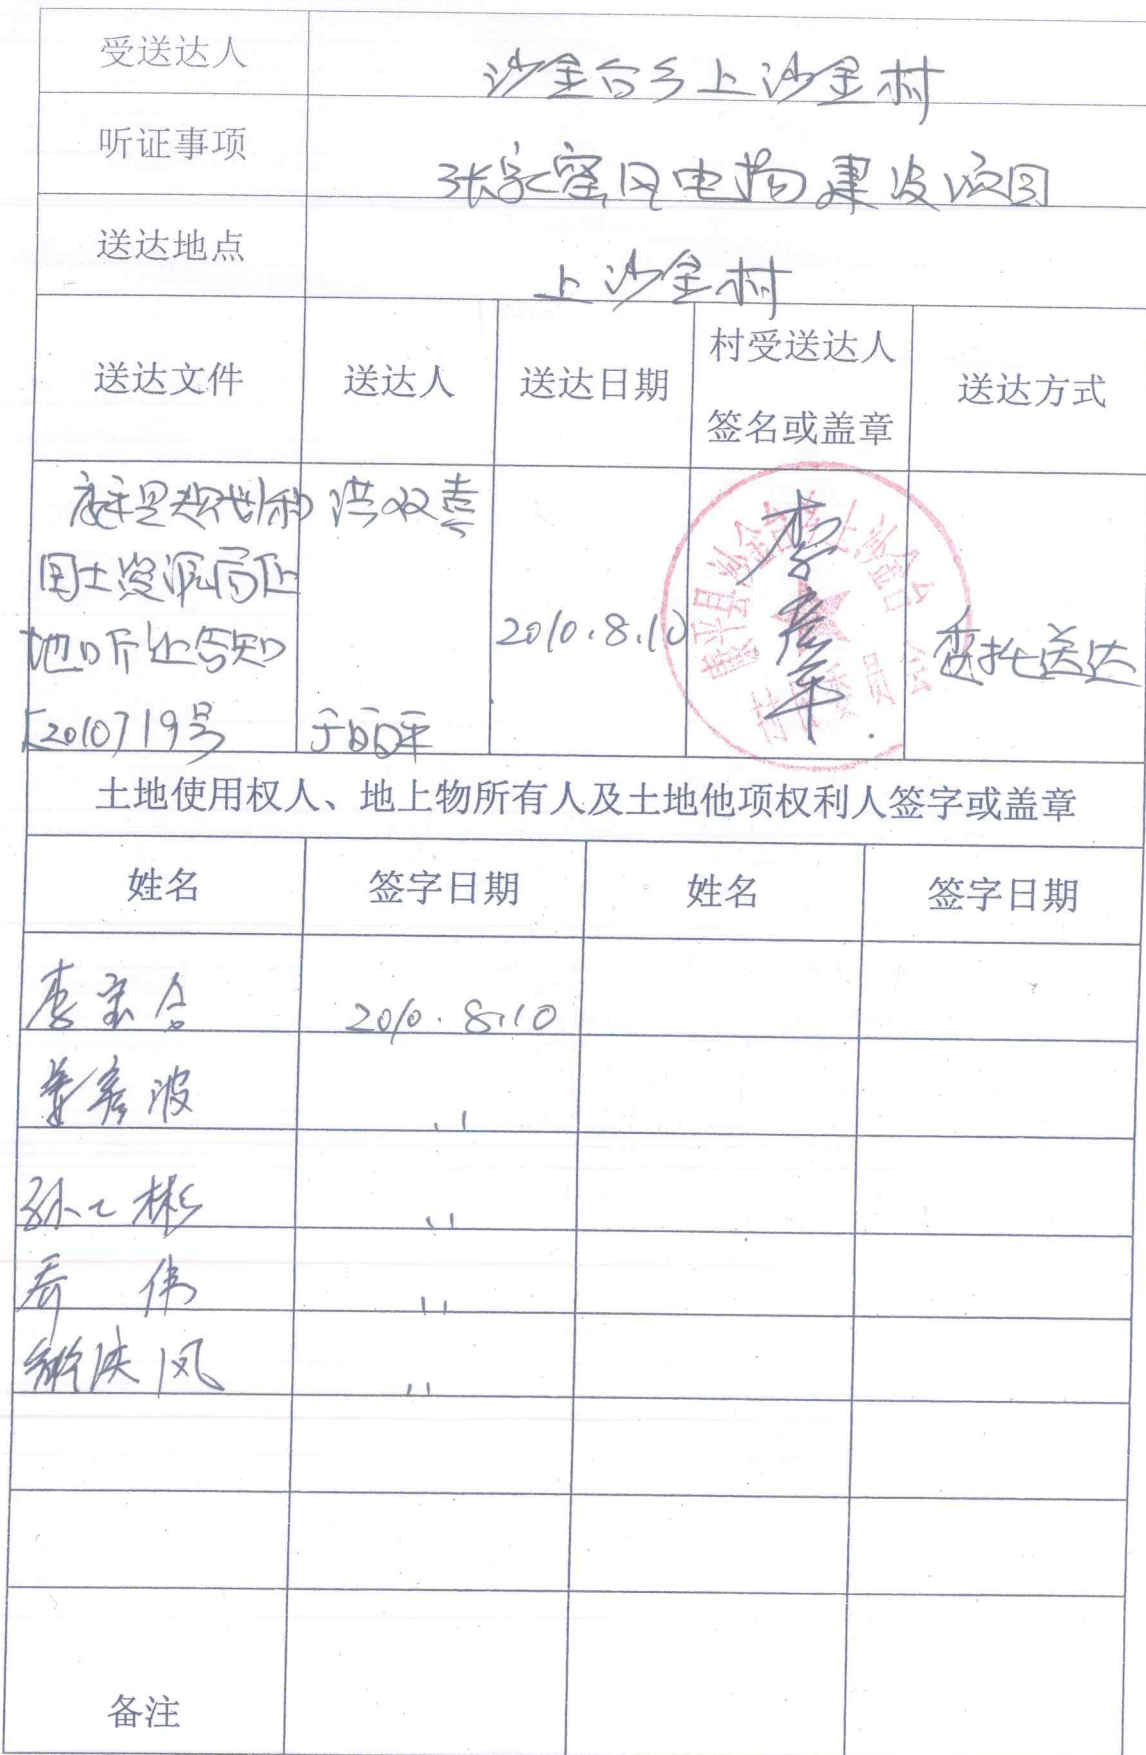 受送达人
沙金台乡上沙金村
听证事项
张家窑风电场建设项目
送达地点
上沙金村
送达文件
送达人
送达日期
村受送达人
签名或盖章
送达方式
康平县规划和
国土资源局征
地听证告知
[2010]19号
洪双喜
2010.8.10
李彦军
委托送达
土地使用权人、地上物所有人及土地他项权利人签字或盖章
姓名
签字日期
姓名
签字日期
李宝合
2010.8.10
姜彦波
〃
孙 彬
〃
乔 伟
〃
凤
〃
备注